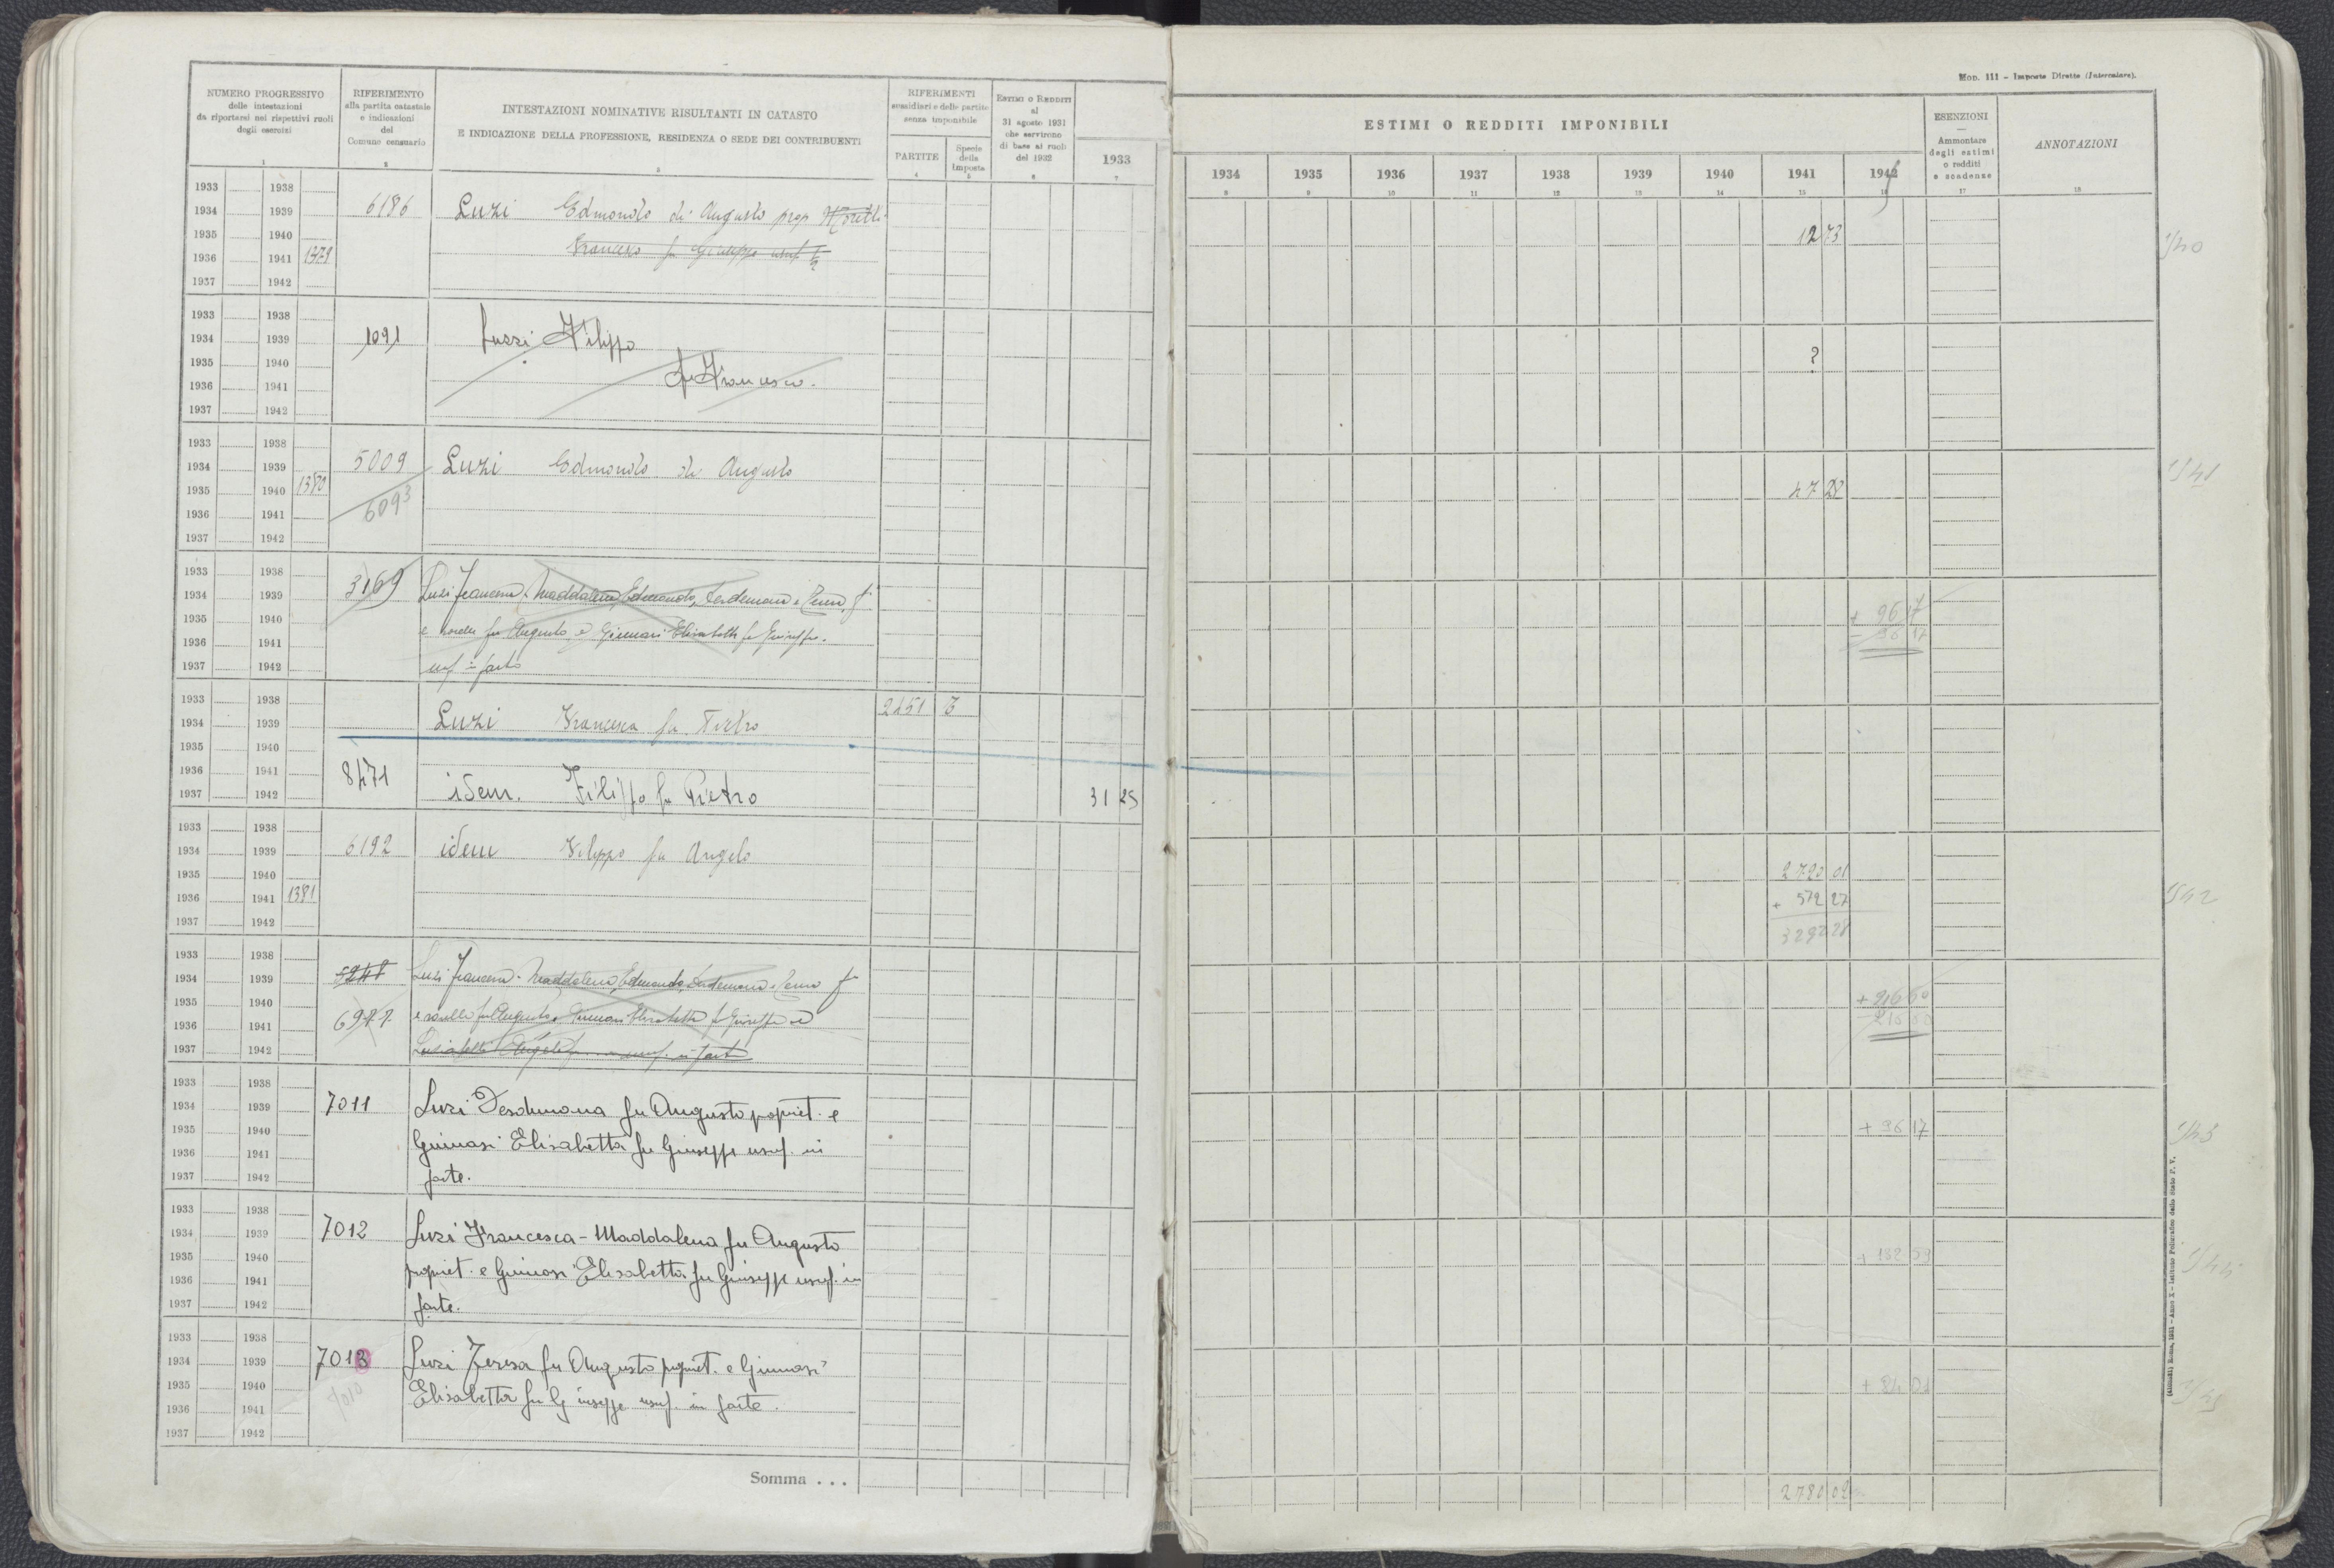 Mod. 111 - Imposte Dirette (Intercalare).
NUMERO PROGRESSIVO
delle intestazioni
da riportarsi nei rispettivi ruoli
degli esercizi
1
RIFERIMENTO
alla partita catastale
e indicazioni
del
Comune censuario
2
INTESTAZIONI NOMINATIVE RISULTANTI IN CATASTO
E INDICAZIONE DELLA PROFESSIONE, RESIDENZA O SEDE DEI CONTRIBUENTI
3
RIFERIMENTI
sussidiari e delle partite
senza imponibile
PARTITE
4
Specie
della
Imposta
5
ESTIMI O REDDITI
al
31 agosto 1931
che servirono
di base ai ruoli
del 1932
6
1933
7
ESTIMI O REDDITI IMPONIBILI
1934 1935 1936 1937 1938 1939 1940 1941 1942
8 9 10 11 12 13 14 15 16
ESENZIONI
Ammontare
degli estimi
o redditi
e scadenze
17
ANNOTAZIONI
18
1933 1938
1934 1939 6186 Luzi Edmondo di Augusto prop Moretti
1935 1940 Francesco fu Giuseppe usuf 1/2 12 73
1936 1941 1379
1937 1942
1933 1938
1934 1939 1091 Luzzi Filippo
1935 1940 fu Francesco. ?
1936 1941
1937 1942
1933 1938
1934 1939 5009 Luzi Edmondo di Augusto
1935 1940 1380 6093 47 28
1936 1941
1937 1942
1933 1938
1934 1939 3169 Luzi Francesca-Maddalena, Edmondo, Desdemona e
1935 1940 fu Augusto e Elisabetta fu Giuseppe. + 96 17
1936 1941 usuf in parte - 96 17
1937 1942
1933 1938 2151
1934 1939 Luzi Francesca fu Pietro
1935 1940
1936 1941 8471
1937 1942 idem. Filippo fu Pietro 31 25
1933 1938
1934 1939 6192 idem Filippo fu Angelo
1935 1940 2720 01
1936 1941 1381 + 572 27
1937 1942 3292 28
1933 1938
1934 1939 Luzi Francesca-Maddalena, Edmondo, Desdemona e fu
1935 1940 fu Augusto e Elisabetta fu Giuseppe ed
1936 1941 usuf. in parte
1937 1942
1933 1938
1934 1939 7011 Luzi Desdemona fu Augusto popriet. e
1935 1940 Giunasi Elisabetta fu Giuseppe usuf. in + 96 17
1936 1941 parte.
1937 1942
1933 1938
1934 1939 7012 Luzi Francesca-Maddalena fu Augusto
1935 1940 popriet. e Giunasi Elisabetta fu Giuseppe usuf. in + 132 59
1936 1941 parte.
1937 1942
1933 1938
1934 1939 7013 Luzi Teresa fu Augusto popriet. e Giunnasi
1935 1940 7010 Elisabetta fu Giuseppe usuf. in parte.
1936 1941
1937 1942
Somma . . . 2780 02